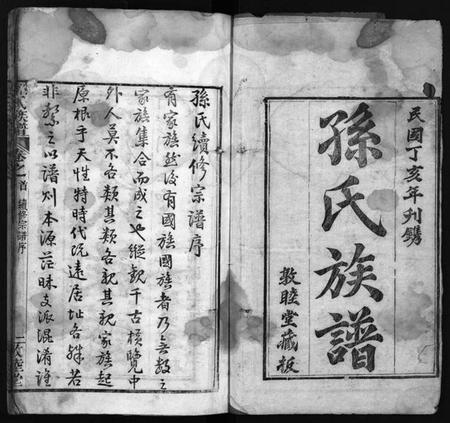 民國丁亥年刋鐫
孫氏族譜
敦睦堂藏板
孫氏續修宗譜序
有家族然後有國族國族者乃無數之
家族集合而成之也縱觀千古橫覽中
外人莫不各類其類各親其親家族起
原根乎天性特時代既遠居址各殊若
非繫之以譜則本源茫昧支派混淆誰
氏族譜
卷首
續修宗譜序